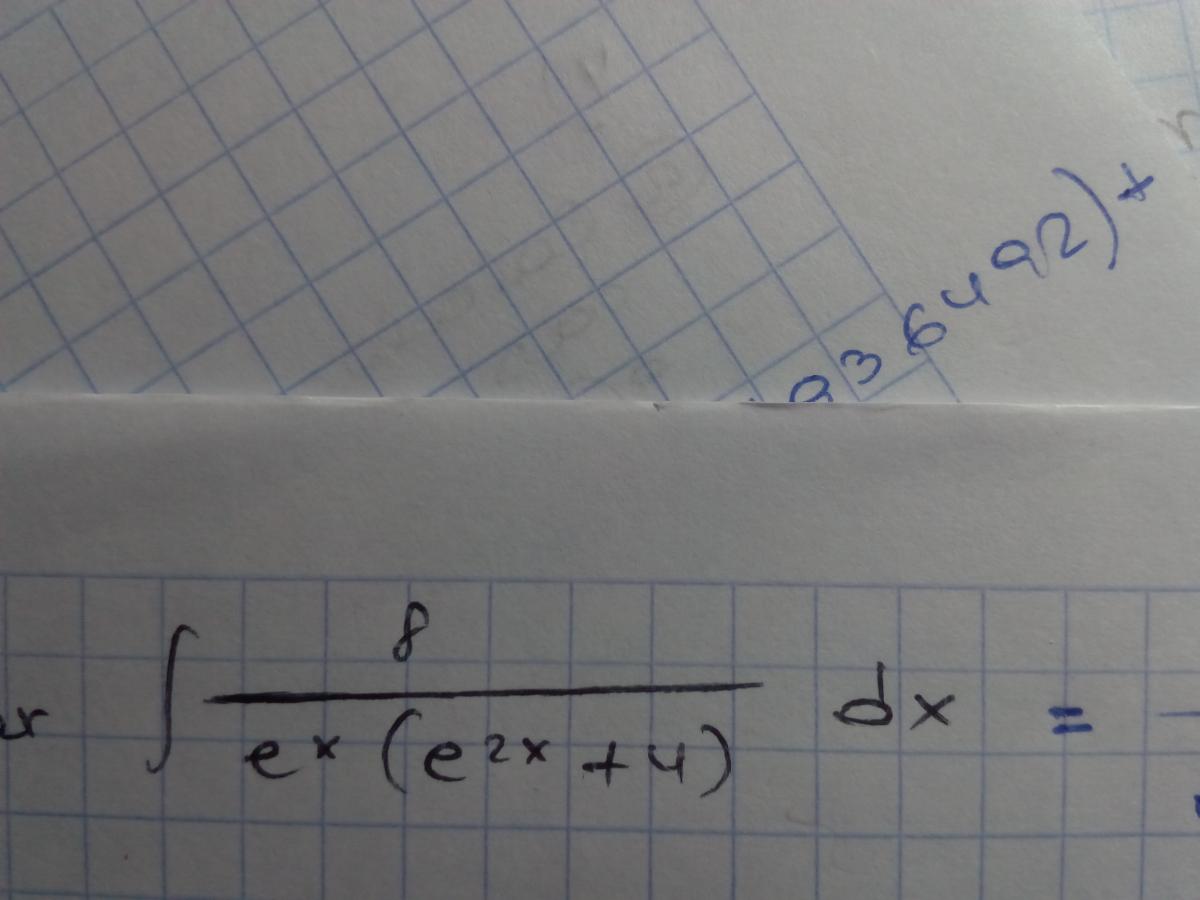 9 3 6 4 9 2) +
∫ 8 / (e^x (e^{2x} + 4)) dx =